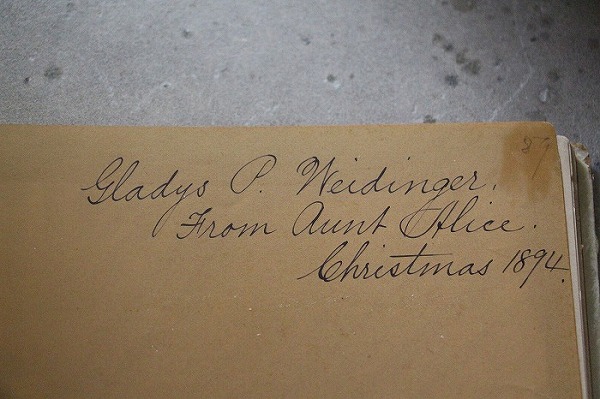 Gladys P. Weidinger.
From Aunt Alice.
Christmas 1894.